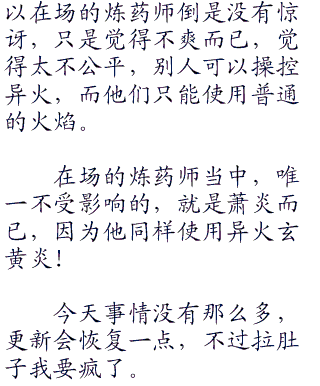 以在场的炼药师倒是没有惊
讶，只是觉得不爽而已，觉
得太不公平，别人可以操控
异火，而他们只能使用普通
的火焰。
在场的炼药师当中，唯
一不受影响的，就是萧炎而
已，因为他同样使用异火玄
黄炎！
今天事情没有那么多，
更新会恢复一点，不过拉肚
子我要疯了。